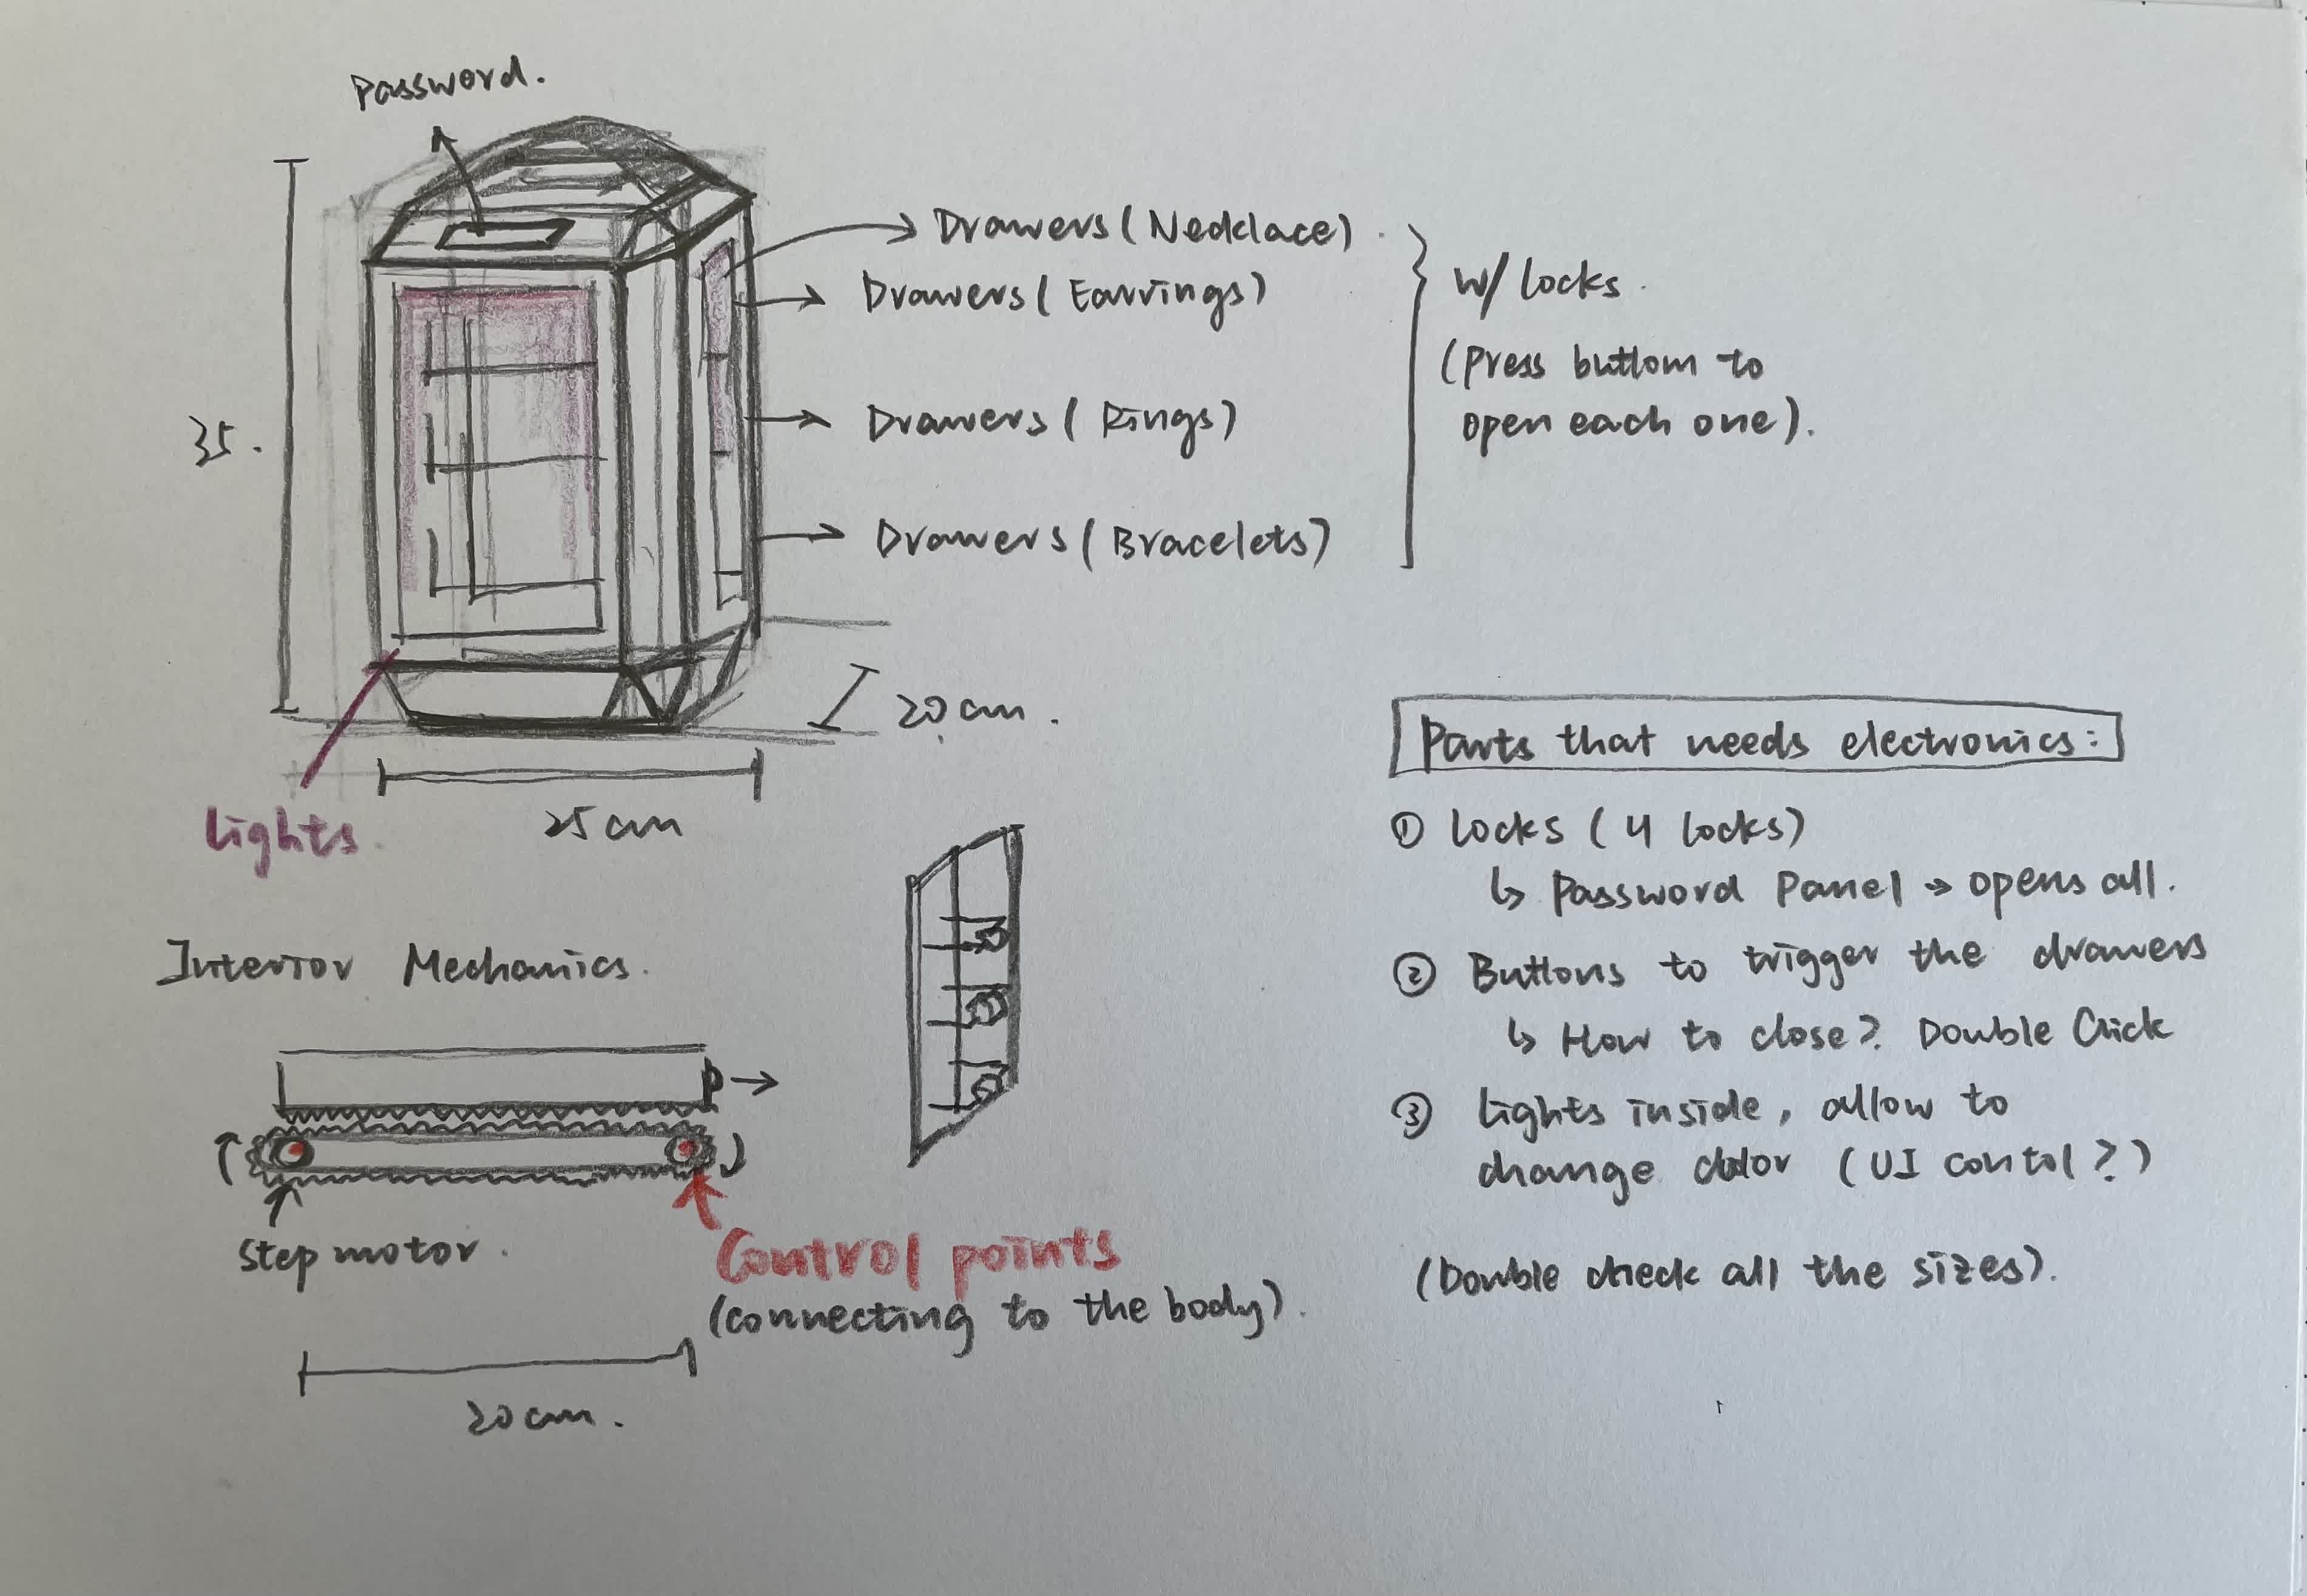 Password.
Drawers (Necklace).
Drawers (Earrings)
Drawers (Rings)
Drawers (Bracelets)
w/ locks.
(Press buttom to
open each one).
35.
20 cm.
25 cm
lights.
Interior Mechanics.
Step motor.
Control points
(connecting to the body).
20 cm.
Parts that needs electronics:
① locks (4 locks)
↳ Password Panel → opens all.
② Buttons to trigger the drawers
↳ How to close? Double Click
③ lights inside, allow to
change color (UI contol?)
(Double check all the sizes).